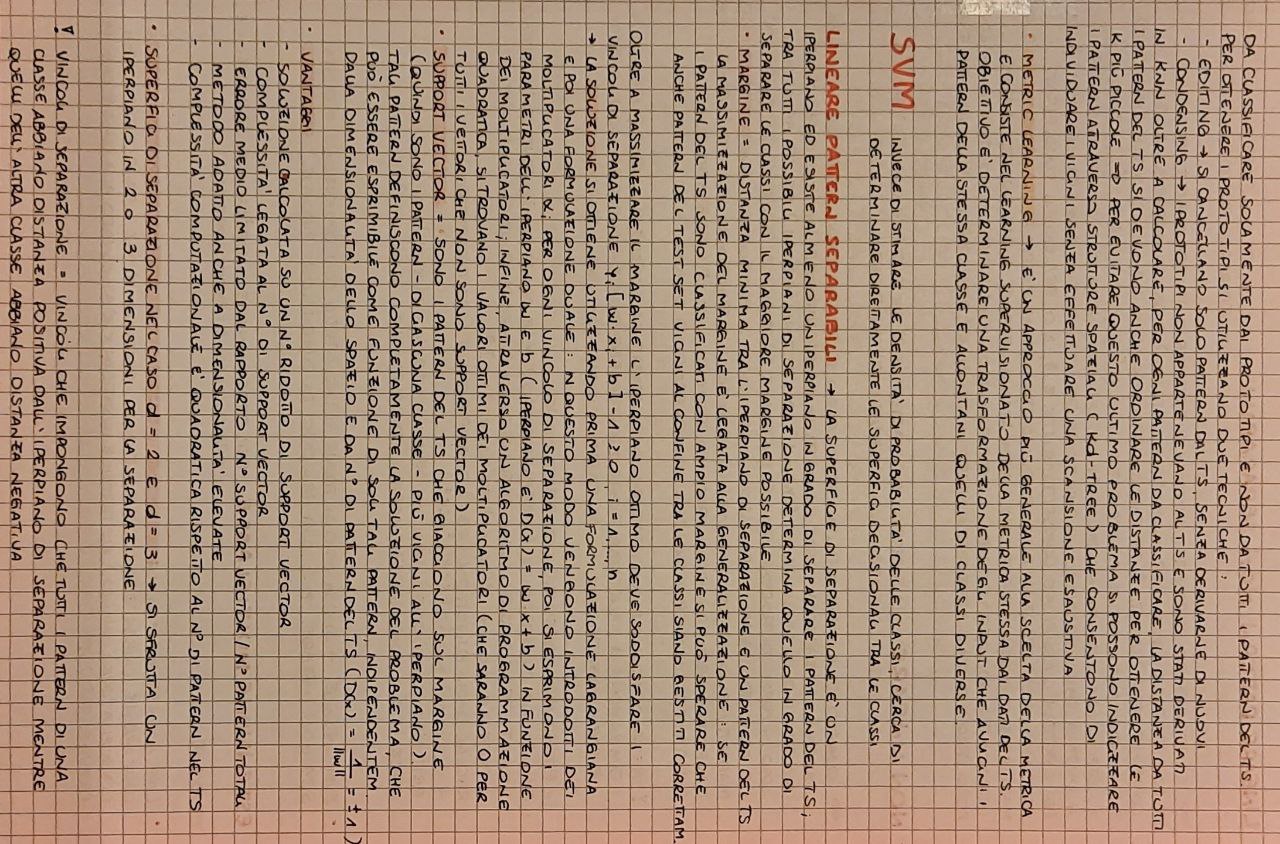 DA CLASSIFICARE SOLAMENTE DAI PROTOTIPI E NON DA TUTTI I PATTERN DEL TS.
PER OTTENERE I PROTOTIPI SI UTILIZZANO DUE TECNICHE:
- EDITING → SI CANCELLANO SOLO PATTERN DAL TS, SENZA DERIVARNE DI NUOVI
- CONDENSING → I PROTOTIPI NON APPARTENEVANO AL TS E SONO STATI DERIVATI
IN KNN OLTRE A CALCOLARE, PER OGNI PATTERN DA CLASSIFICARE, LA DISTANZA DA TUTTI
I PATTERN DEL TS SI DEVONO ANCHE ORDINARE LE DISTANZE PER OTTENERE LE
K PIÙ PICCOLE => PER EVITARE QUESTO ULTIMO PROBLEMA SI POSSONO INDICIZZARE
I PATTERN ATRAVERSO STRUTTURE SPAZIALI (Kd-TREE) CHE CONSENTONO DI
INDIVIDUARE I VICINI SENZA EFFETTUARE UNA SCANSIONE ESAUSTIVA
• METRIC LEARNING → E' UN APPROCCIO PIÙ GENERALE ALLA SCELTA DELLA METRICA
E CONSISTE NEL LEARNING SUPERVISIONATO DELLA METRICA STESSA DAI DATI DEL TS.
OBIETTIVO E' DETERMINARE UNA TRASFORMAZIONE DEGLI INPUT CHE AVVICINI I
PATTERN DELLA STESSA CLASSE E ALLONTANI QUELLI DI CLASSI DIVERSE.
SVM INVECE DI STIMARE LE DENSITA' DI PROBABILITA' DELLE CLASSI, CERCA DI
DETERMINARE DIRETTAMENTE LE SUPERFICI DECISIONALI TRA LE CLASSI
LINEARE PATTERN SEPARABILI → LA SUPERFICIE DI SEPARAZIONE E' UN
IPERPIANO ED ESISTE ALMENO UN IPERPIANO IN GRADO DI SEPARARE I PATTERN DEL TS;
TRA TUTTI I POSSIBILI IPERPIANI DI SEPARAZIONE DETERMINA QUELLO IN GRADO DI
SEPARARE LE CLASSI CON IL MAGGIORE MARGINE POSSIBILE
• MARGINE = DISTANZA MINIMA TRA L'IPERPIANO DI SEPARAZIONE E UN PATTERN DEL TS
LA MASSIMIZZAZIONE DEL MARGINE E' LEGATA ALLA GENERALIZZAZIONE: SE
I PATTERN DEL TS SONO CLASSIFICATI CON AMPIO MARGINE SI PUÒ SPERARE CHE
ANCHE PATTERN DEL TEST SET VICINI AL CONFINE TRA LE CLASSI SIANO GESTITI CORRETTAM.
OLTRE A MASSIMIZZARE IL MARGINE L'IPERPIANO OTTIMO DEVE SODDISFARE I
VINCOLI DI SEPARAZIONE yᵢ[w·xᵢ+b]-1≥0, i=1,...,n
→ LA SOLUZIONE SI OTTIENE UTILIZZANDO PRIMA UNA FORMULAZIONE LAGRANGIANA
E POI UNA FORMULAZIONE DUALE: IN QUESTO MODO VENGONO INTRODOTTI DEI
MOLTIPLICATORI αᵢ PER OGNI VINCOLO DI SEPARAZIONE, POI SI ESPRIMONO I
PARAMETRI DELL'IPERPIANO w E b (IPERPIANO E' D(x) = w x + b) IN FUNZIONE
DEI MOLTIPLICATORI; INFINE, ATTRAVERSO UN ALGORITMO DI PROGRAMMAZIONE
QUADRATICA, SI TROVANO I VALORI OTTIMI DEI MOLTIPLICATORI (CHE SARANNO 0 PER
TUTTI I VETTORI CHE NON SONO SUPPORT VECTOR)
• SUPPORT VECTOR = SONO I PATTERN DEL TS CHE GIACCIONO SUL MARGINE
(QUINDI SONO I PATTERN - DI CIASCUNA CLASSE - PIÙ VICINI ALL'IPERPIANO).
TALI PATTERN DEFINISCONO COMPLETAMENTE LA SOLUZIONE DEL PROBLEMA, CHE
PUÒ ESSERE ESPRIMIBILE COME FUNZIONE DI SOLI TALI PATTERN, INDIPENDENTEM.
DALLA DIMENSIONALITA' DELLO SPAZIO E DA N° DI PATTERN DEL TS (D(x) = 1/||w|| = ±1)
• VANTAGGI
- SOLUZIONE CALCOLATA SU UN N° RIDOTTO DI SUPPORT VECTOR
- COMPLESSITA' LEGATA AL N° DI SUPPORT VECTOR
- ERRORE MEDIO LIMITATO DAL RAPPORTO N° SUPPORT VECTOR / N° PATTERN TOTALI
- METODO ADATTO ANCHE A DIMENSIONALITA' ELEVATE
- COMPLESSITA' COMPUTAZIONALE E' QUADRATICA RISPETTO AL N° DI PATTERN NEL TS
• SUPERFICI DI SEPARAZIONE NEL CASO d = 2 E d = 3 → SI SFRUTTA UN
IPERPIANO IN 2 O 3 DIMENSIONI PER LA SEPARAZIONE
! VINCOLI DI SEPARAZIONE = VINCOLI CHE IMPONGONO CHE TUTTI I PATTERN DI UNA
CLASSE ABBIANO DISTANZA POSITIVA DALL'IPERPIANO DI SEPARAZIONE MENTRE
QUELLI DELL'ALTRA CLASSE ABBIANO DISTANZA NEGATIVA